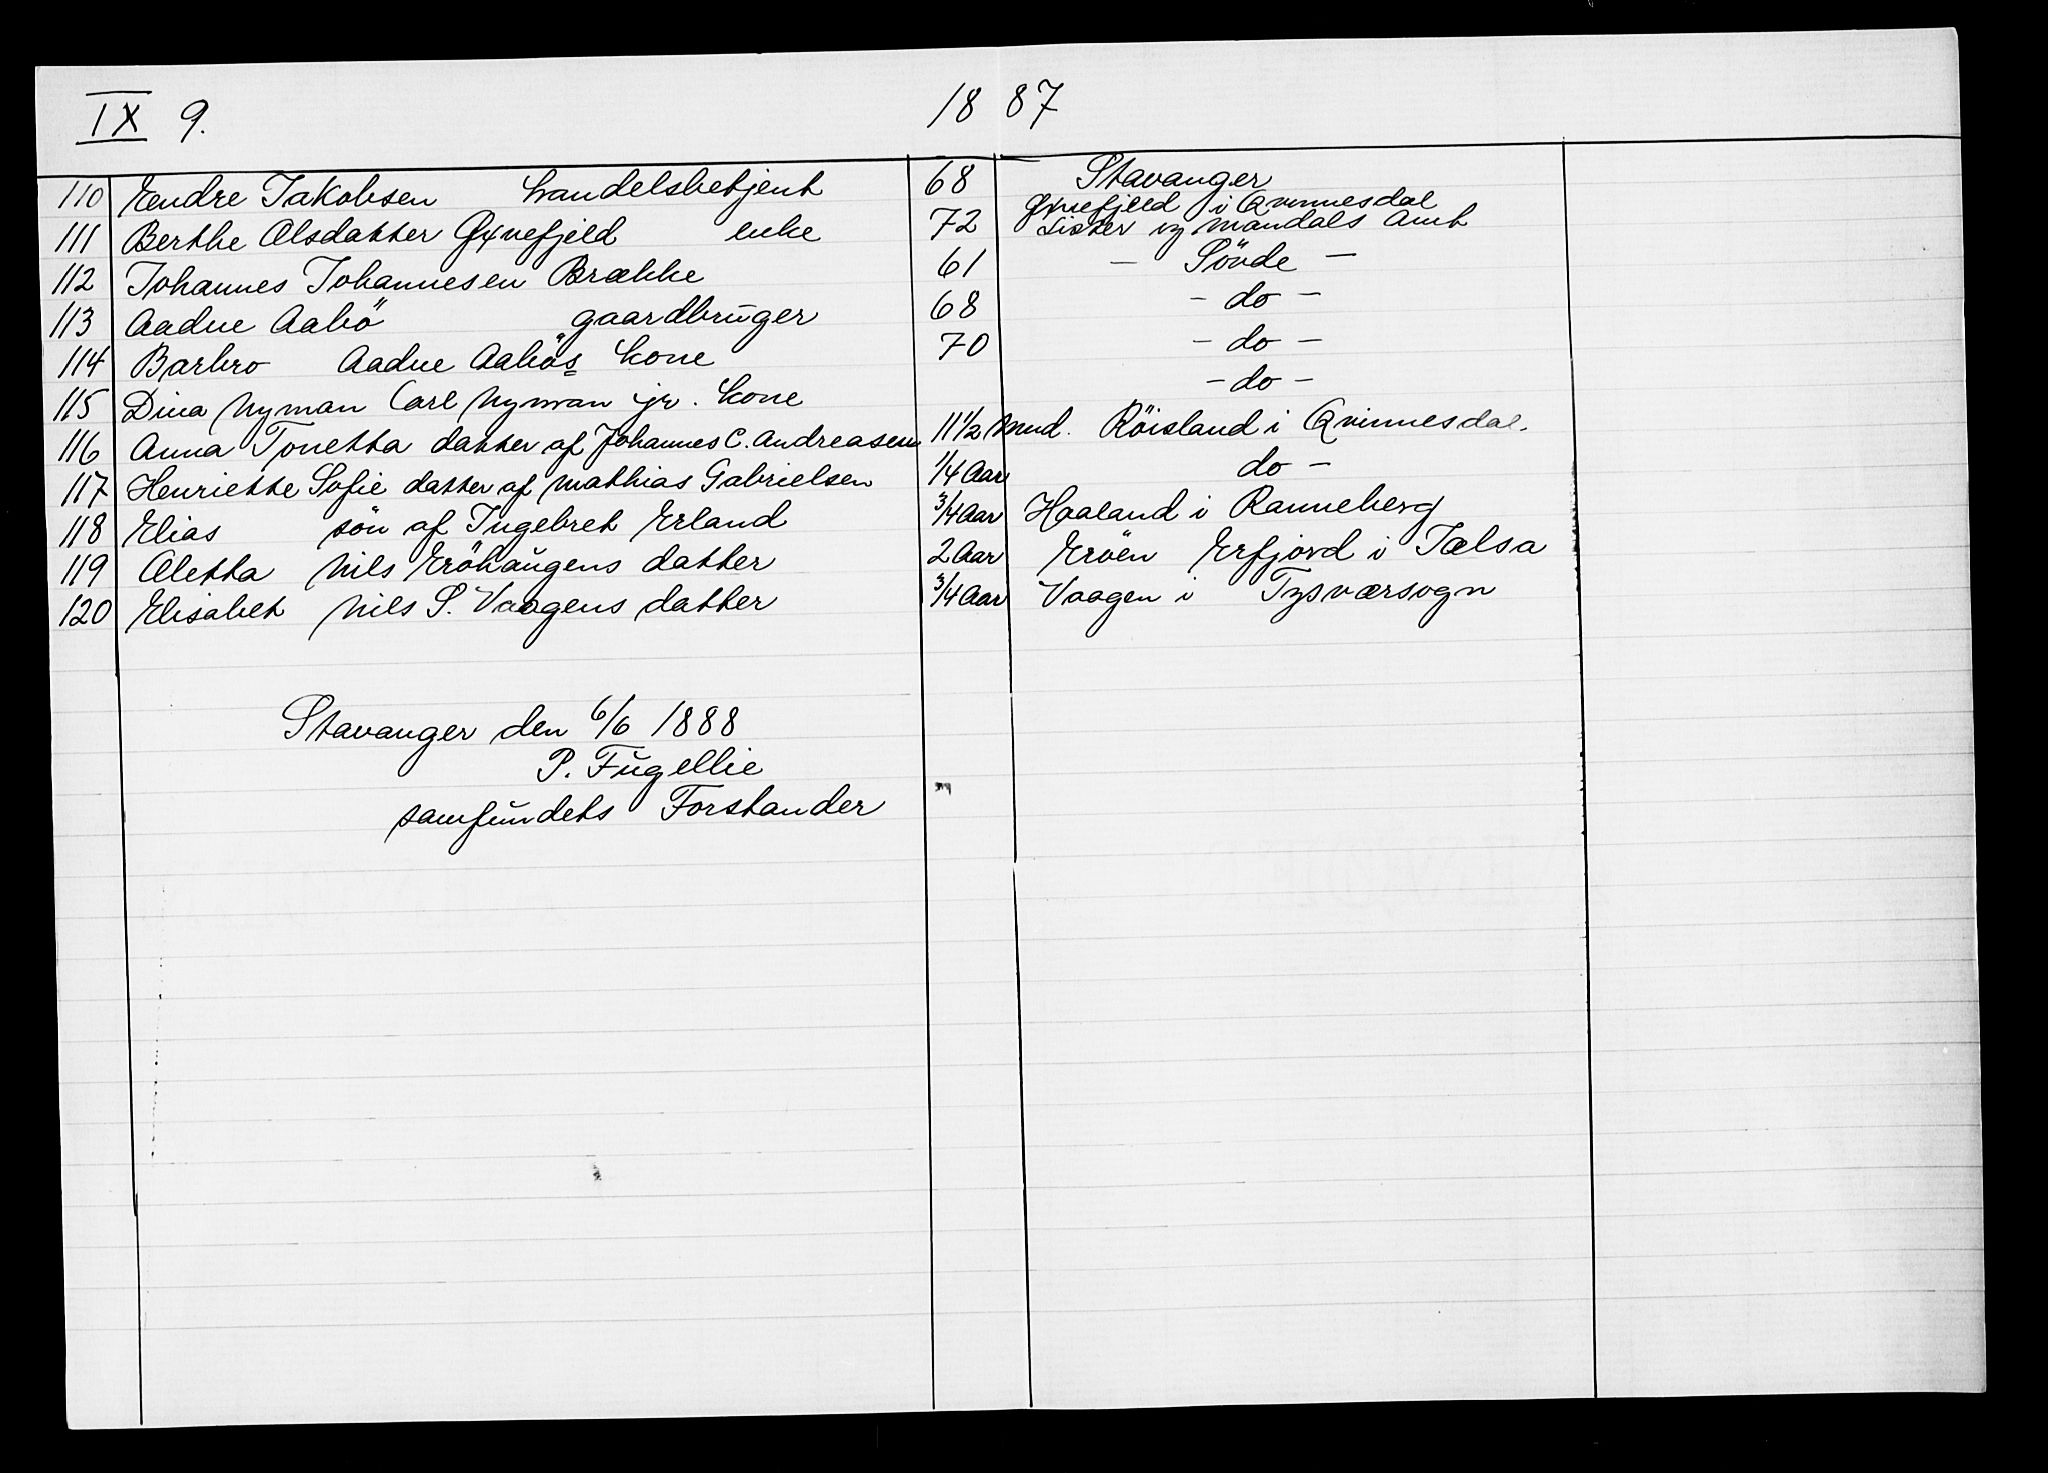 IX 9. 1887
110 Endre Jakobsen handelsbetjent 68 Stavanger
111 Berthe Olsdatter Gyxnefjeld enke 72 Gyxnefjeld i Qvinnesdal
Lister og Mandals Amt
112 Johannes Johannesen Brække 61 - Sövde -
113 Aadne Aabö gaardbruger 68 - do -
114 Barbro Aadne Aabös kone 70 - do -
115 Dina Nyman Carl Nyman jr. kone - do -
116 Anna Tonetta datter af Johannes C. Andreasen 11 1/2 Mnd. Röisland i Qvinnesdal
117 Henriette Sofie datter af Mathias Gabrielsen 1/4 Aar do -
118 Elias sön af Ingebret Erland 3/4 Aar Haaland i Ranneberg
119 Aletta Nils Eröhaugens datter 2 Aar Eröen Erfjord i Jælsa
120 Elisabet Nils S. Vaagens datter 3/4 Aar Vaagen i Tysværsogn
Stavanger den 6/6 1888
P. Fugellie
samfundets Forstander